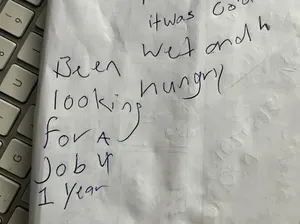 it was cold
Been wet and h
looking hungry
for A
Job 4
1 Year